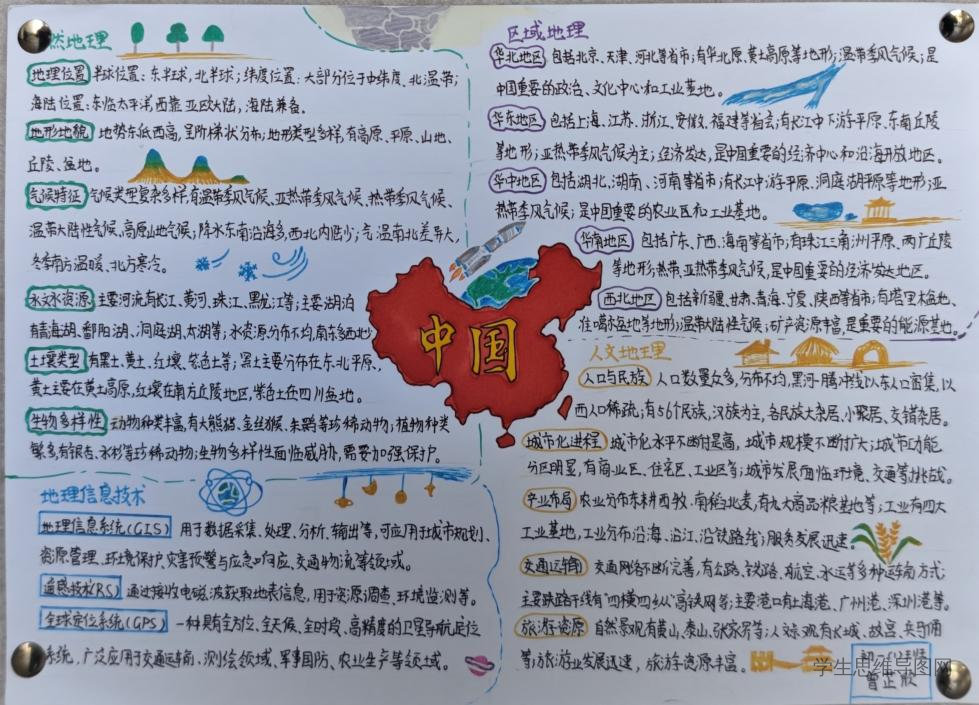 然地理
地理位置 半球位置：东半球，北半球；纬度位置：大部分位于中纬度、北温带；
海陆位置：东临太平洋，西靠亚欧大陆，海陆兼备。
地形地貌 地势东低西高，呈阶梯状分布；地形类型多样，有高原、平原、山地、
丘陵、盆地。
气候特征 气候类型复杂多样，有温带季风气候、亚热带季风气候、热带季风气候、
温带大陆性气候、高原山地气候；降水东南沿海多，西北内陆少；气温南北差异大，
冬季南方温暖、北方寒冷。
水文水资源 主要河流有长江、黄河、珠江、黑龙江等；主要湖泊
有青海湖、鄱阳湖、洞庭湖、太湖等；水资源分布不均，南东多西北少
土壤类型 有黑土、黄土、红壤、紫色土等；黑土主要分布在东北平原、
黄土主要在黄土高原，红壤在南方丘陵地区，紫色土在四川盆地。
生物多样性 动物种类丰富，有大熊猫、金丝猴、朱鹮等珍稀动物；植物种类
繁多，有银杏、水杉等珍稀动物；生物多样性面临威胁，需要加强保护。
地理信息技术
地理信息系统（GIS） 用于数据采集、处理、分析、输出等，可应用于城市规划、
资源管理、环境保护、灾害预警与应急响应、交通物流等领域。
遥感技术（RS） 通过接收电磁波获取地表信息，用于资源调查、环境监测等。
全球定位系统（GPS） 一种具有全方位、全天候、全时段、高精度的卫星导航定位
系统，广泛应用于交通运输、测绘领域、军事国防、农业生产等领域。
中国
区域地理
华北地区 包括北京、天津、河北等省市；有华北原、黄土高原等地形；温带季风气候；是
中国重要的政治、文化中心和工业基地。
华东地区 包括上海、江苏、浙江、安徽、福建等省；有长江中下游平原、东南丘陵
等地形；亚热带季风气候为主；经济发达，是中国重要的经济中心和沿海开放地区。
华中地区 包括湖北、湖南、河南等省市；有长江中游平原、洞庭湖平原等地形；亚
热带季风气候；是中国重要的农业区和工业基地。
华南地区 包括广东、广西、海南等省市；有珠江三角洲平原、两广丘陵
等地形；热带、亚热带季风气候，是中国重要的经济发达地区。
西北地区 包括新疆、甘肃、青海、宁夏、陕西等省市；有塔里木盆地、
准噶尔盆地等地形；温带大陆性气候；矿产资源丰富，是重要的能源基地。
人文地理
人口与民族 人口数量众多，分布不均，黑河-腾冲线以东人口密集，以
西人口稀疏；有56个民族，汉族为主，各民族大杂居、小聚居、交错杂居。
城市化进程 城市化水平不断提高，城市规模不断扩大；城市功能
分区明显，有商业区、住宅区、工业区等；城市发展面临环境、交通等挑战。
产业布局 农业分布东耕西牧、南稻北麦，有九大商品粮基地等；工业有四大
工业基地，工业分布沿海、沿江、沿铁路线；服务发展迅速。
交通运输 交通网络不断完善，有公路、铁路、航空、水运等多种运输方式
主要铁路干线有“四横四纵”高铁网等；主要港口有上海港、广州港、深圳港等。
旅游资源 自然景观有黄山、泰山、张家界等；人文景观有长城、故宫、兵马俑
等；旅游业发展迅速，旅游资源丰富。
学生思维导图网